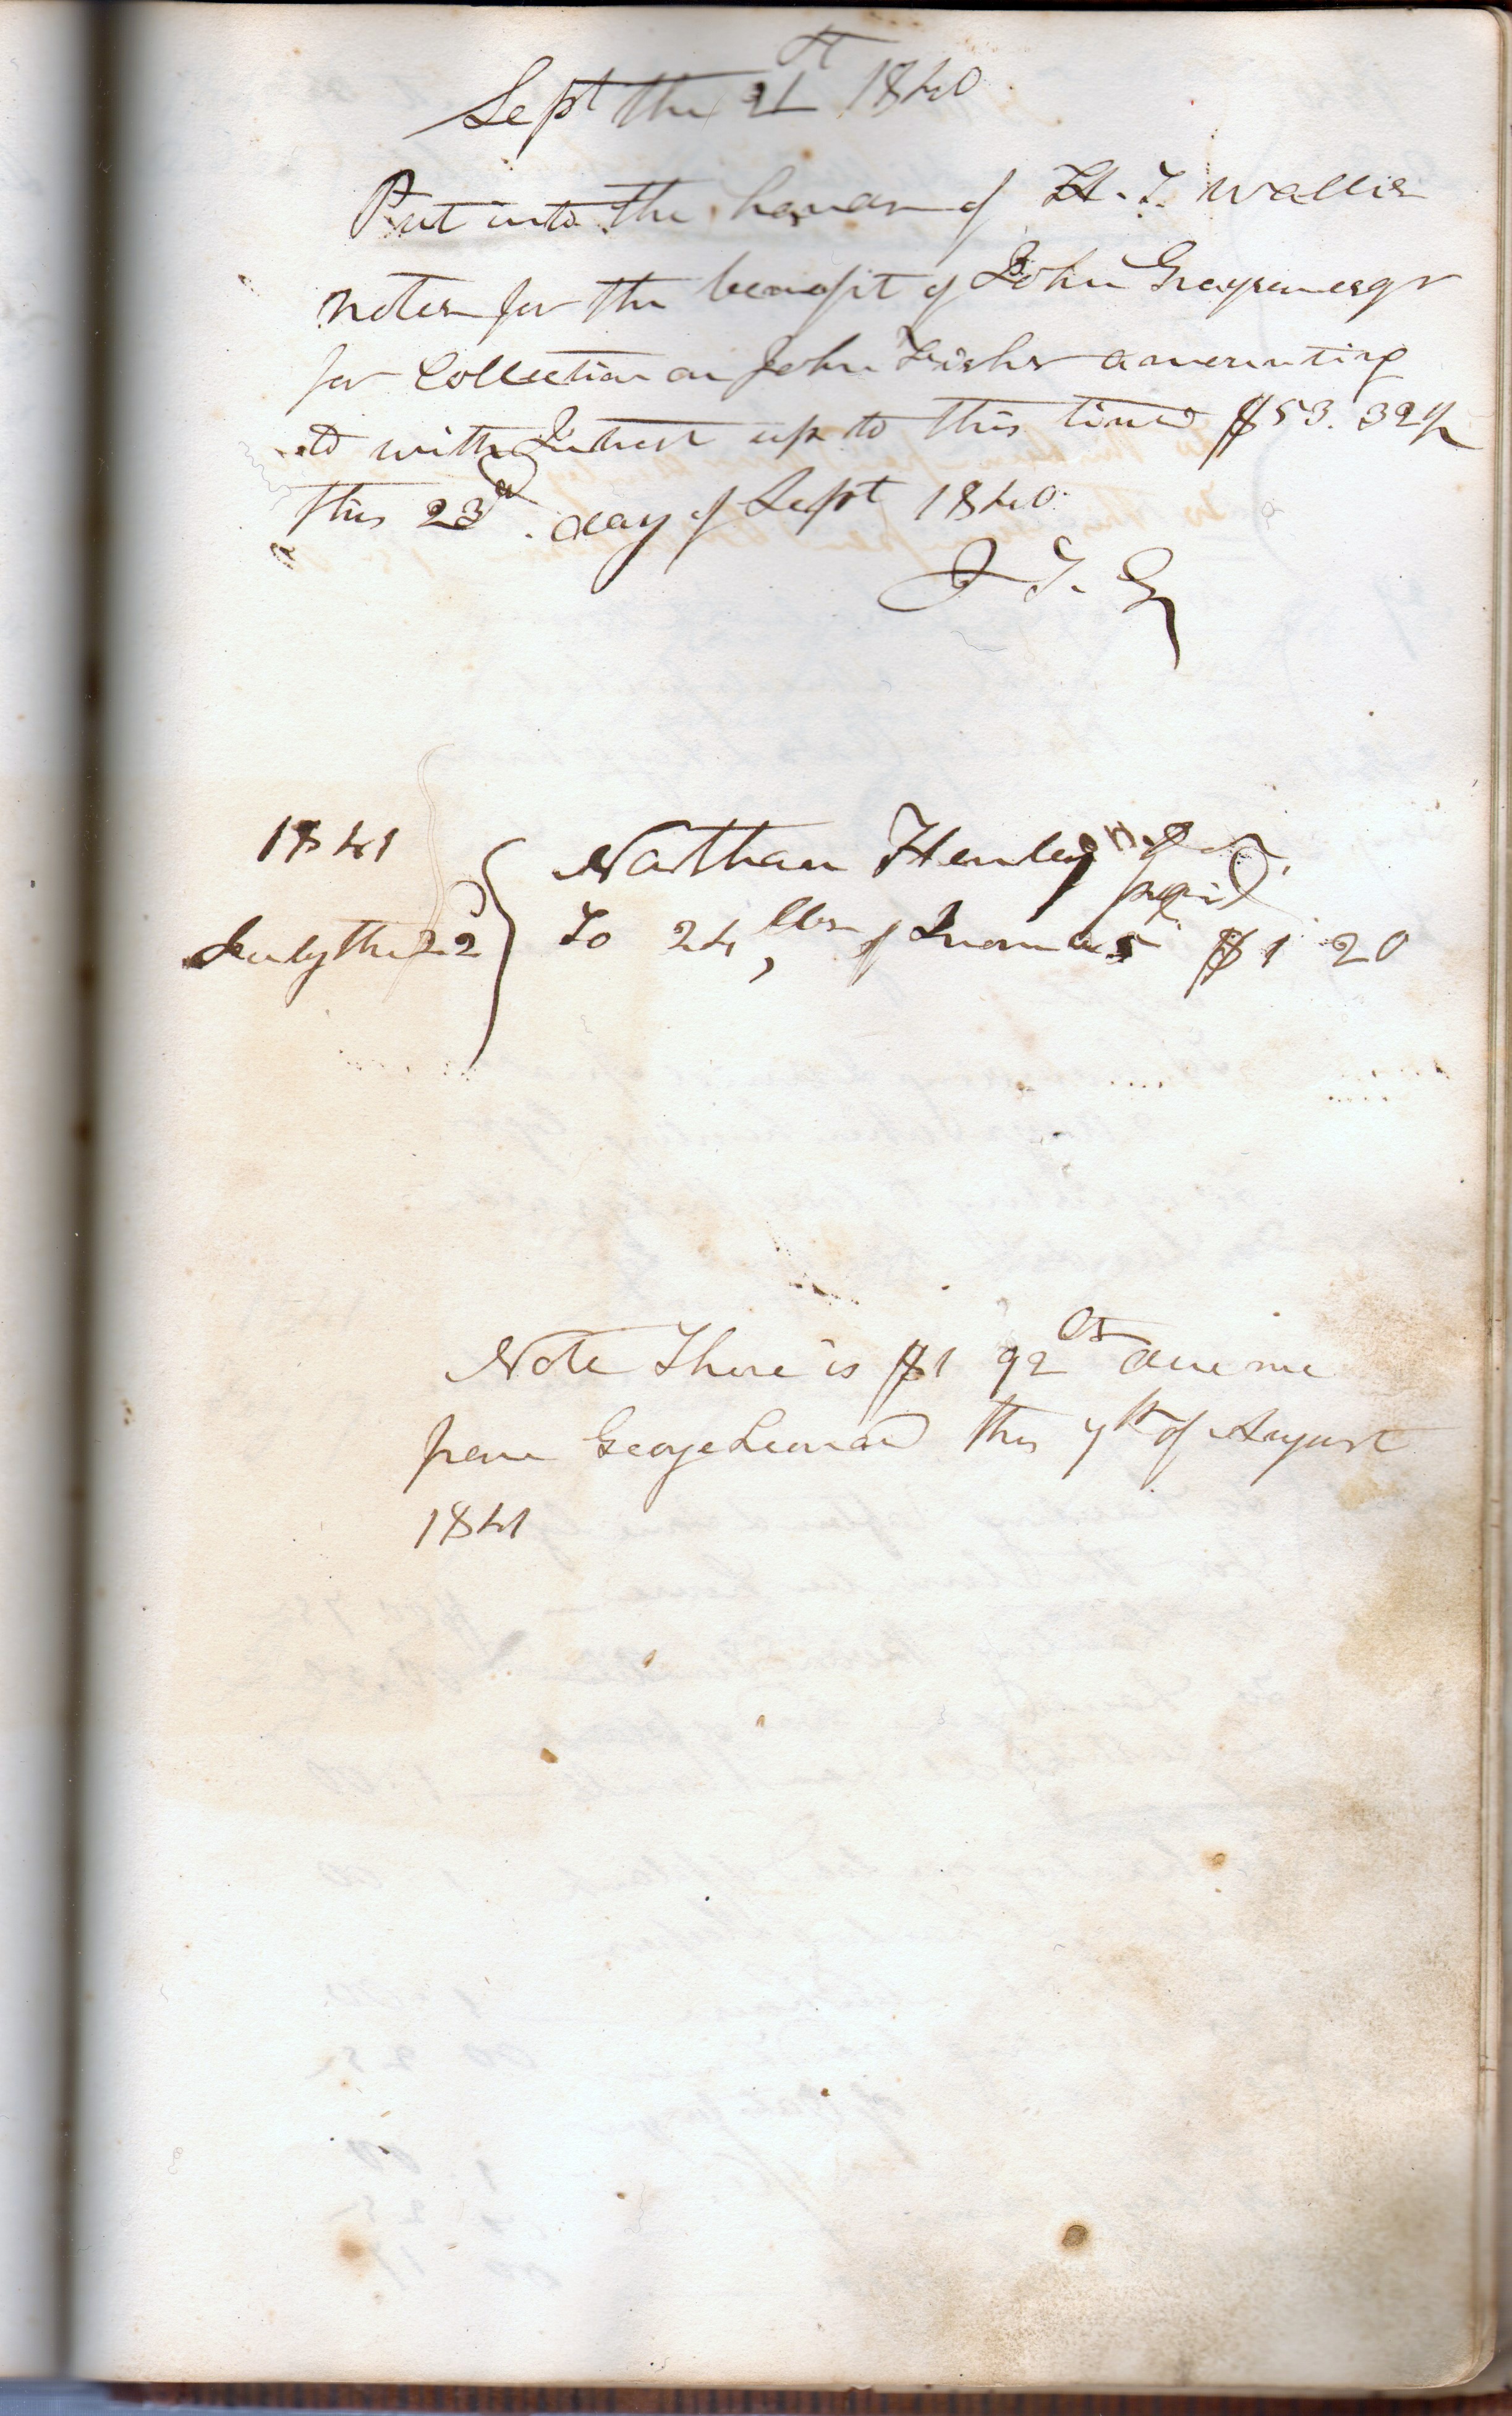 Sept the 21st 1840
Put into the hands of H. T. Wallis
notes for the benefit of John Grayson esqr
for Collection on John Fisher amounting
to with Interest up to this time $53.39
this 23d day of Sept 1840
J. T. G
1841 Nathan Henley
paid
July the 22 To 24 lbs of $1 20
Note There is $1 92 cts due me
from George Leonard this 7th of August
1841